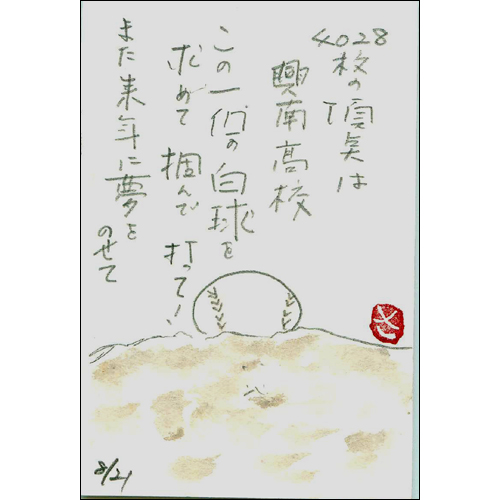 4028校の頂点は
興南高校
この一個の白球を
求めて 掴んで 打って!
また来年に夢を
のせて
8/21